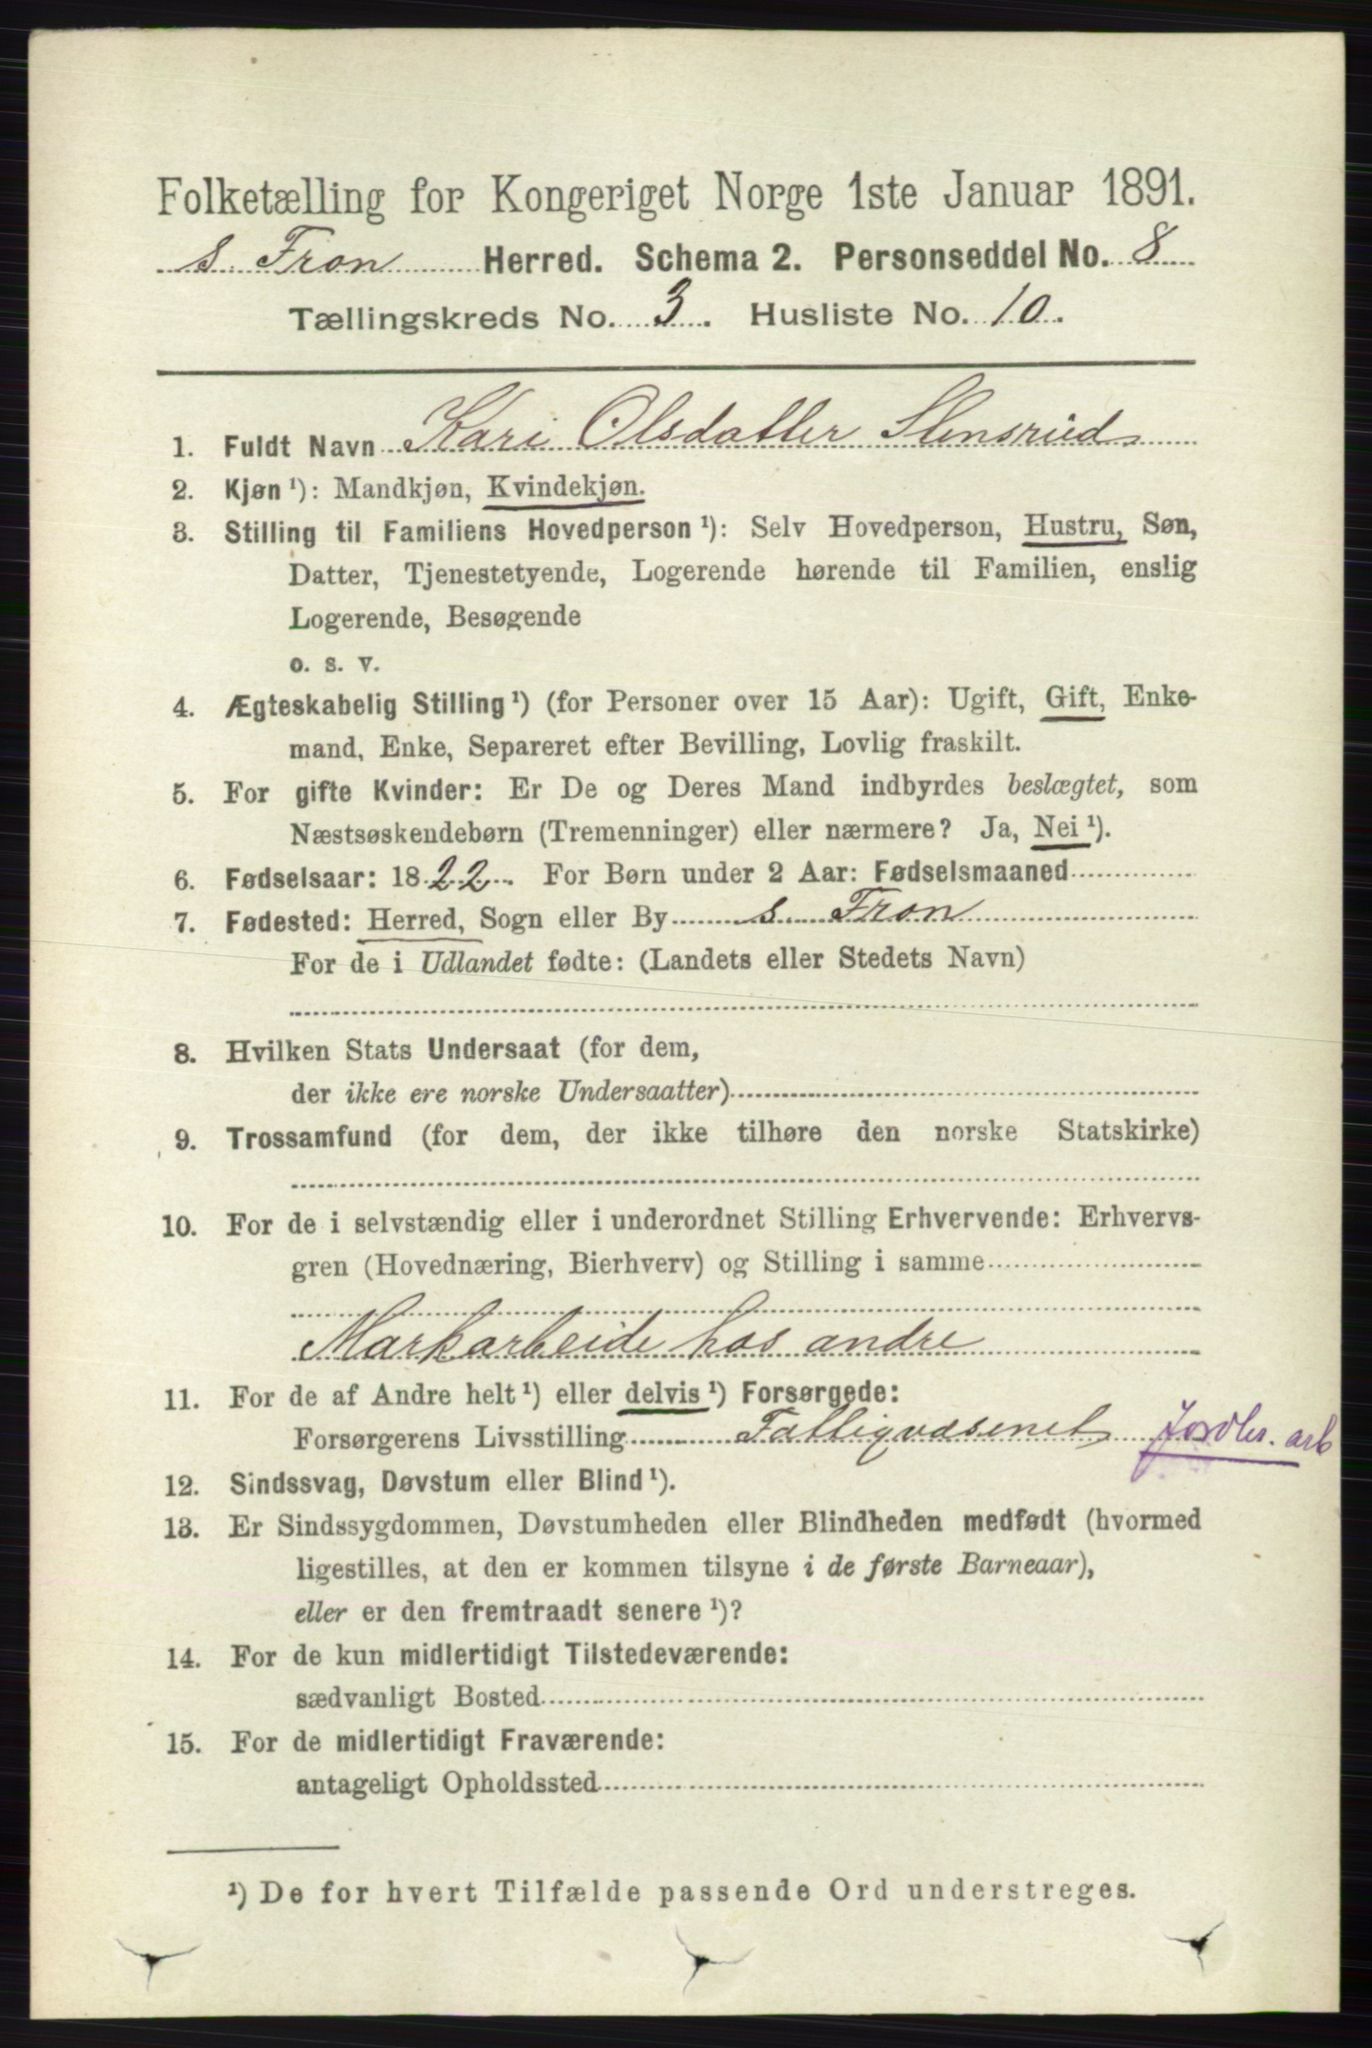 Folketælling for Kongeriget Norge 1ste Januar 1891.
s. Fron Herred. Schema 2. Personseddel No. 8
Tællingskreds No. 3. Husliste No. 10.
1. Fuldt Navn Kari Olsdatter Stensrud
2. Kjøn ¹): Mandkjøn, Kvindekjøn.
3. Stilling til Familiens Hovedperson ¹): Selv Hovedperson, Hustru, Søn,
Datter, Tjenestetyende, Logerende hørende til Familien, enslig
Logerende, Besøgende
o. s. v.
4. Ægteskabelig Stilling ¹) (for Personer over 15 Aar): Ugift, Gift, Enke-
mand, Enke, Separeret efter Bevilling, Lovlig fraskilt.
5. For gifte Kvinder: Er De og Deres Mand indbyrdes beslægtet, som
Næstsøskendebørn (Tremenninger) eller nærmere? Ja, Nei ¹).
6. Fødselsaar: 1822. For Børn under 2 Aar: Fødselsmaaned
7. Fødested: Herred, Sogn eller By s. Fron
For de i Udlandet fødte: (Landets eller Stedets Navn)
8. Hvilken Stats Undersaat (for dem,
der ikke ere norske Undersaatter)
9. Trossamfund (for dem, der ikke tilhøre den norske Statskirke)
10. For de i selvstændig eller i underordnet Stilling Erhvervende: Erhvervs-
gren (Hovednæring, Bierhverv) og Stilling i samme
Markarbeide hos andre
11. For de af Andre helt ¹) eller delvis ¹) Forsørgede:
Forsørgerens Livsstilling Fattigvæsenet Jordbr. arb
12. Sindssvag, Døvstum eller Blind ¹).
13. Er Sindssygdommen, Døvstumheden eller Blindheden medfødt (hvormed
ligestilles, at den er kommen tilsyne i de første Barneaar),
eller er den fremtraadt senere ¹)?
14. For de kun midlertidigt Tilstedeværende:
sædvanligt Bosted
15. For de midlertidigt Fraværende:
antageligt Opholdssted
¹) De for hvert Tilfælde passende Ord understreges.